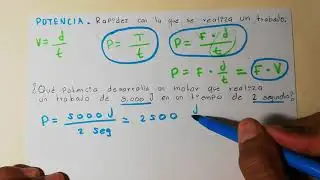 POTENCIA. Rapidez con la que se realiza un trabajo.
V = d/t P = T/t P = F · d/t
P = F · d/t = F · V
¿Qué potencia desarrolla un motor que realiza
un trabajo de 5000 J en un tiempo de 2 segundos?
P = 5000 J / 2 seg = 2500 J